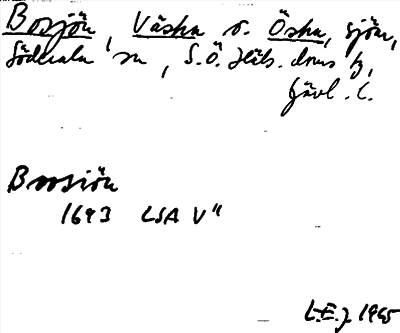 Bosjön, Västra o. Östra, sjöar,
Söderala sn, S.Ö. Häls. doms tg,
Gävl. l.
Bossiön
1693 LSA V"
L.E.J 1965